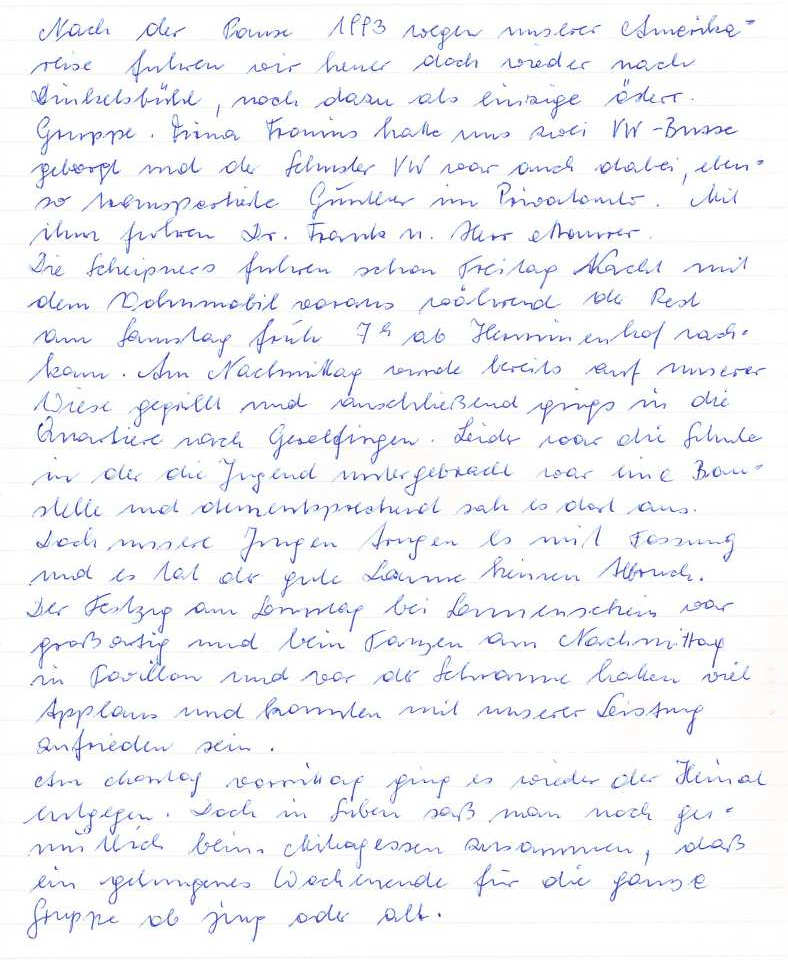 Nach der Pause 1993 wegen unserer Amerika-
reise fuhren wir heuer doch wieder nach
Dinkelsbühl, noch dazu als einzige österr.
Gruppe. Firma hatte uns zwei VW-Busse
geborgt und der Schuster VW war auch dabei, eben-
so transportierte Günther im Privatauto. Mit
ihm fuhren Dr. Frank u. Herr Maurer.
Die Scheipners fuhren schon Freitag Nacht mit
dem Wohnmobil voraus während der Rest
am Samstag früh 7h ab Herminenhof nach-
kam. Am Nachmittag wurde bereits auf unserer
Wiese gegrillt und anschließend gings in die
Quartiere nach Gerolfingen. Leider war die Schule
in der die Jugend untergebracht war eine Bau-
stelle und dementsprechend sah es dort aus.
Doch unsere Jungen trugen es mit Fassung
und es tat der gute Laune keinen Abbruch.
Der Festzug am Sonntag bei Sonnenschein war
großartig und beim Tanzen am Nachmittag
in Pavillon und vor der Schranne hatten viel
Applaus und konnten mit unserer Leistung
zufrieden sein.
Am Montag vormittag ging es wieder der Heimat
entgegen. Doch in saß man noch ge-
mütlich beim Mittagessen zusammen, daß
ein gelungenes Wochenende für die ganze
Gruppe ob jung oder alt.